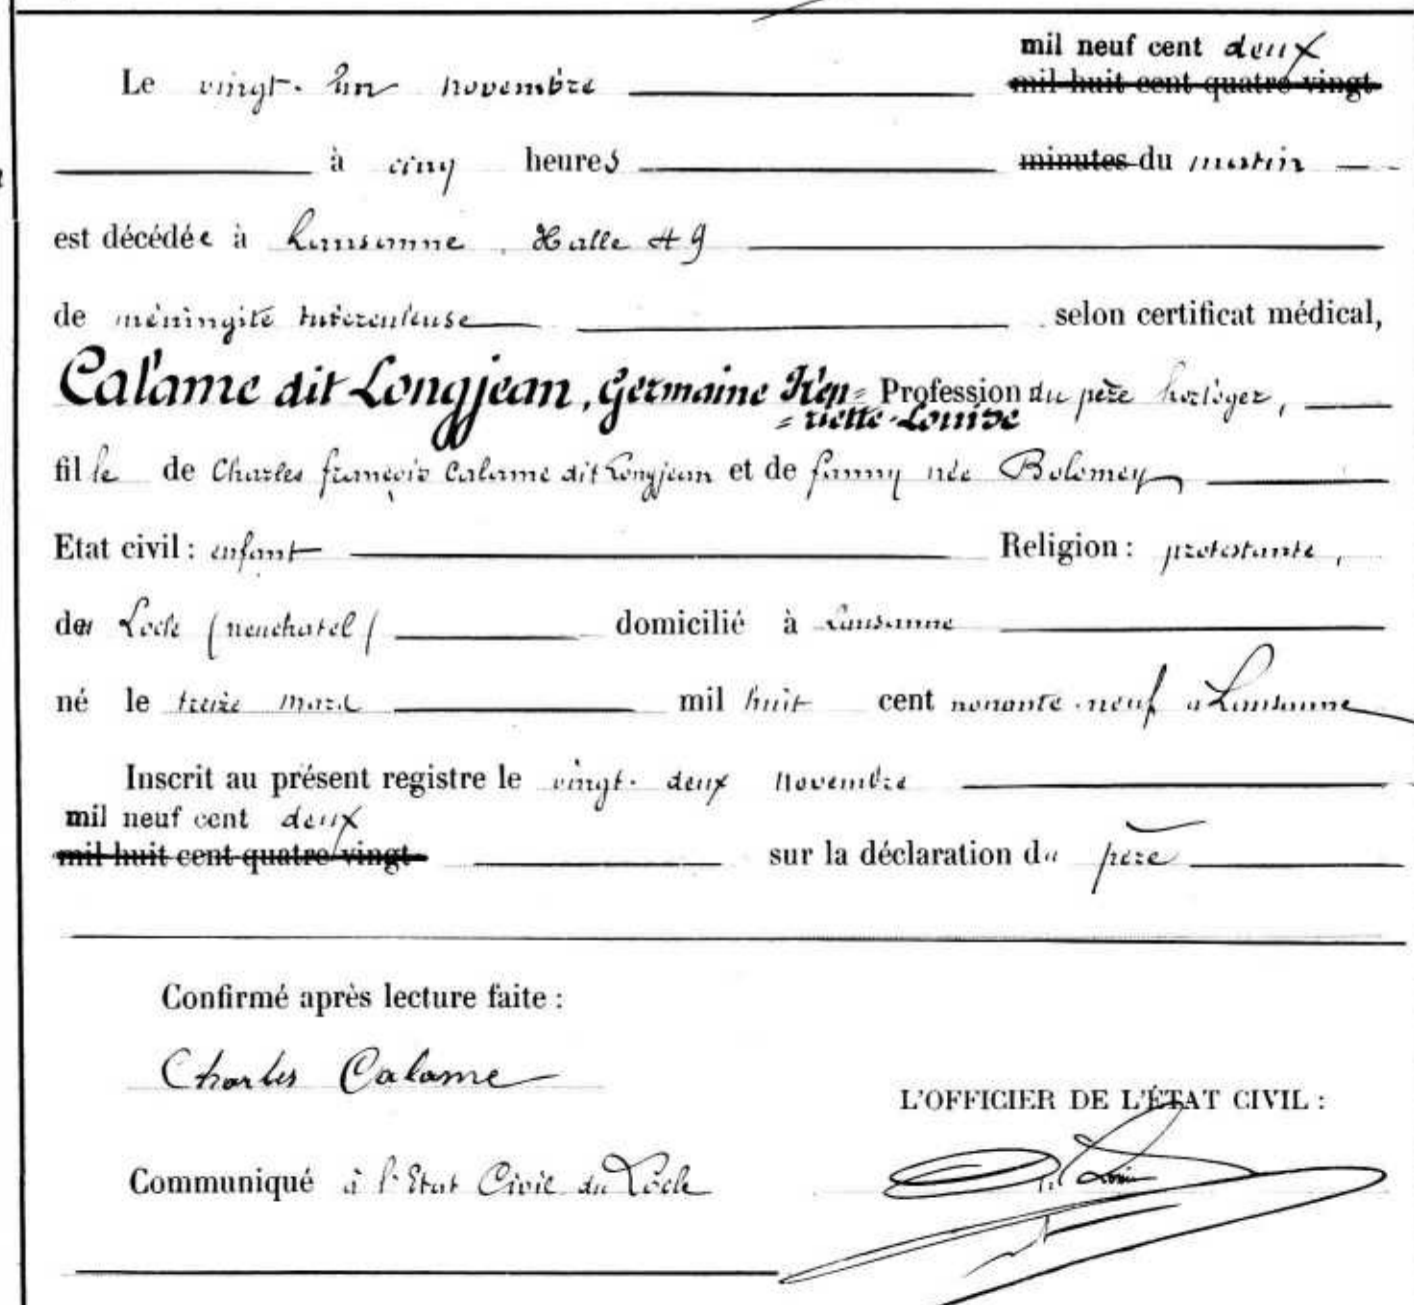 mil neuf cent deux
Le vingt-un novembre mil huit cent quatre-vingt
à cinq heures minutes du matin
est décédée à Lausanne, Halle 49
de méningite tuberculeuse selon certificat médical,
Calame dit Longjean, Germaine Hen= Profession du père horloger,
=riette-Louise
fille de Charles françois Calame dit Longjean et de fanny née Bolomey
Etat civil : enfant Religion : protestante,
du Locle (neuchatel) domicilié à Lausanne
né le treize mars mil huit cent nonante-neuf à Lausanne
Inscrit au présent registre le vingt-deux novembre
mil neuf cent deux
mil huit cent quatre-vingt sur la déclaration du père
Confirmé après lecture faite :
Charles Calame
L'OFFICIER DE L'ÉTAT CIVIL :
Communiqué à l'Etat Civil du Locle